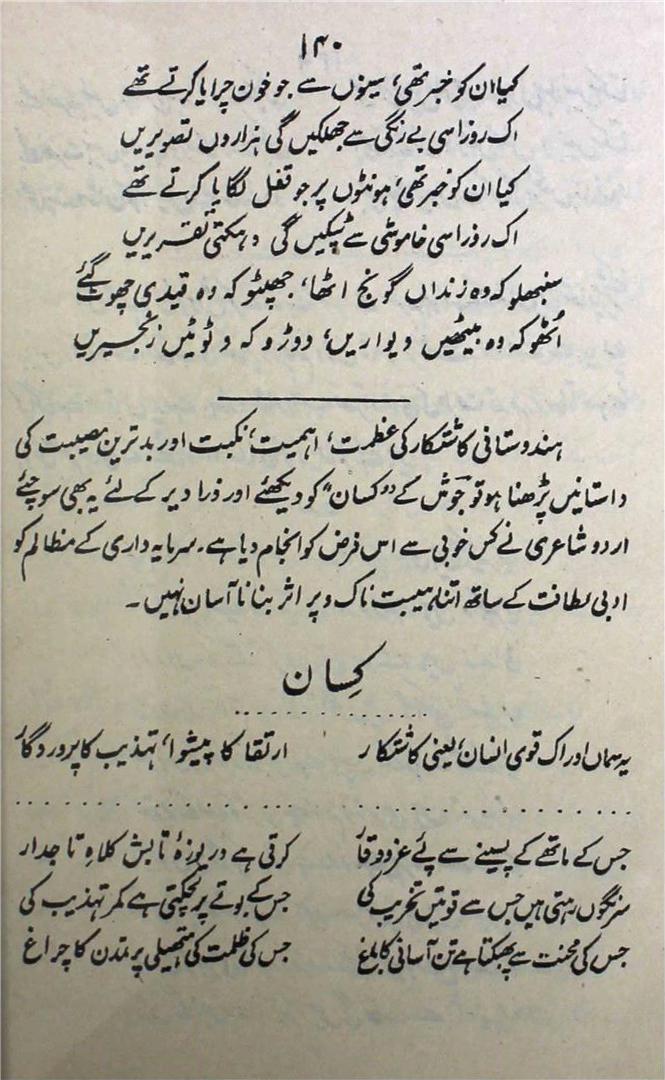 ۱۴۰
کیا ان کو خبر تھی، سینوں سے جو خون چرایا کرتے تھے
اک روز اسی بے رنگی سے جھلکیں گی ہزاروں تصویریں
کیا ان کو خبر تھی، ہونٹوں پر جو قفل لگایا کرتے تھے
اک روز اسی خاموشی سے ٹپکیں گی دہکتی تقریریں
سنبھلو کہ وہ زنداں گونج اٹھا، جھپٹو کہ وہ قیدی چھوٹ گئے
اُٹھو کہ وہ بیٹھیں دیواریں، دوڑو کہ وہ ٹوٹیں زنجیریں
ہندوستانی کاشتکار کی عظمت، اہمیت، نکبت اور بدترین مصیبت کی
داستانیں پڑھنا ہو تو جوش کے "کسان" کو دیکھئے اور ذرا دیر کے لئے یہ بھی سوچئے
اردو شاعری نے کس خوبی سے اس فرض کو انجام دیا ہے۔ سرمایہ داری کے مظالم کو
ادبی لطافت کے ساتھ اتنا ہیبت ناک و پر اثر بنانا آسان نہیں۔
کِسان
یہ سماں اور اک قوی انسان، یعنی کاشتکار ارتقا کا پیشوا، تہذیب کا پروردگار
جس کے ماتھے کے پسینے سے پئے عز و وقار کرتی ہے دریوزۂ تابش کلاہِ تاجدار
سرنگوں رہتی ہیں جس سے قوتیں تخریب کی جس کے بوتے پر لچکتی ہے کمر تہذیب کی
جس کی محنت سے پھبکتا ہے تن آسانی کا باغ جس کی ظلمت کی ہتھیلی پر تمدن کا چراغ